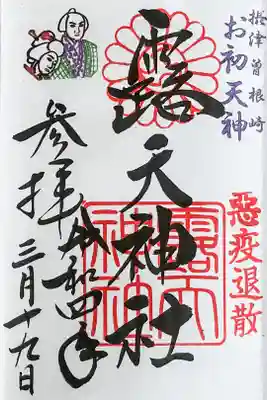 摂津曽根崎
お初天神
露天神社
惡疫退散
参拝
令和四年
三月十九日
露天
神社